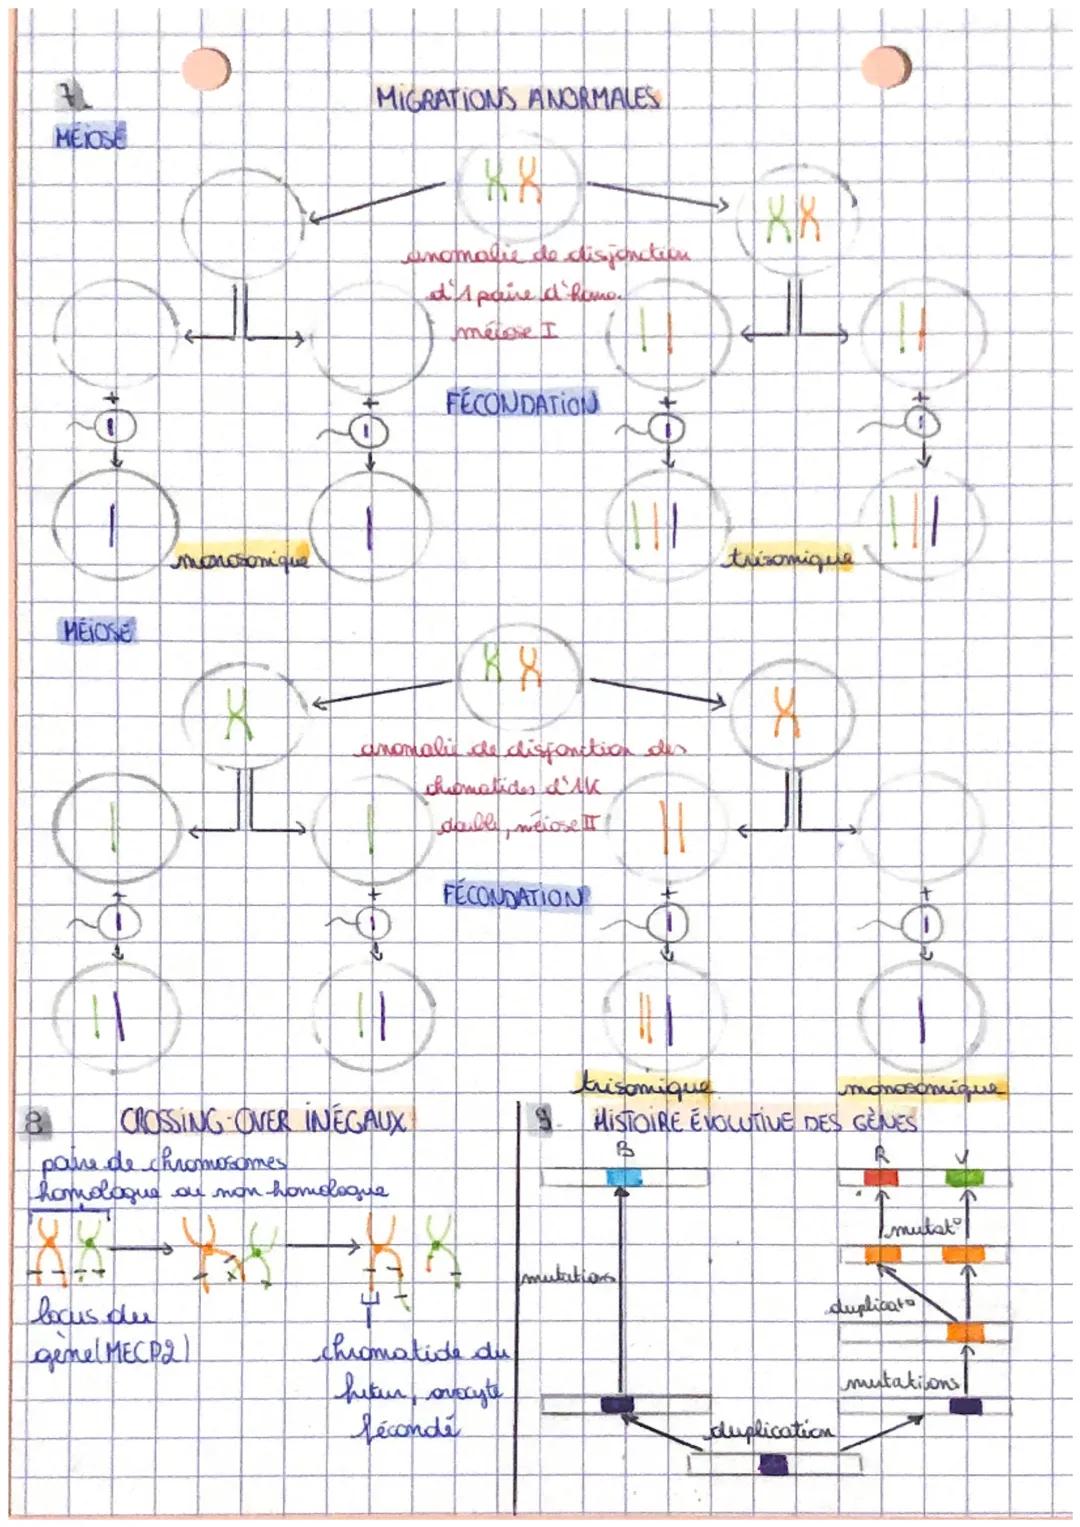 7.
MIGRATIONS ANORMALES
MÉIOSE
anomalie de disjonction
d'1 paire d'homo.
méiose I
FÉCONDATION
+ + + +
monosomique
trisomique
MÉIOSE
anomalie de disjonction des
chromatides d'1K
double, méiose II
FÉCONDATION
+ + + +
trisomique
monosomique
8.
CROSSING-OVER INÉGAUX
paire de chromosomes
homologue ou non-homologue
locus du
gène (MECP2)
chromatide du
futur, ovocyte
fécondé
9.
HISTOIRE ÉVOLUTIVE DES GÈNES
B
R
V
mutat°
mutations
duplicat°
mutations
duplication